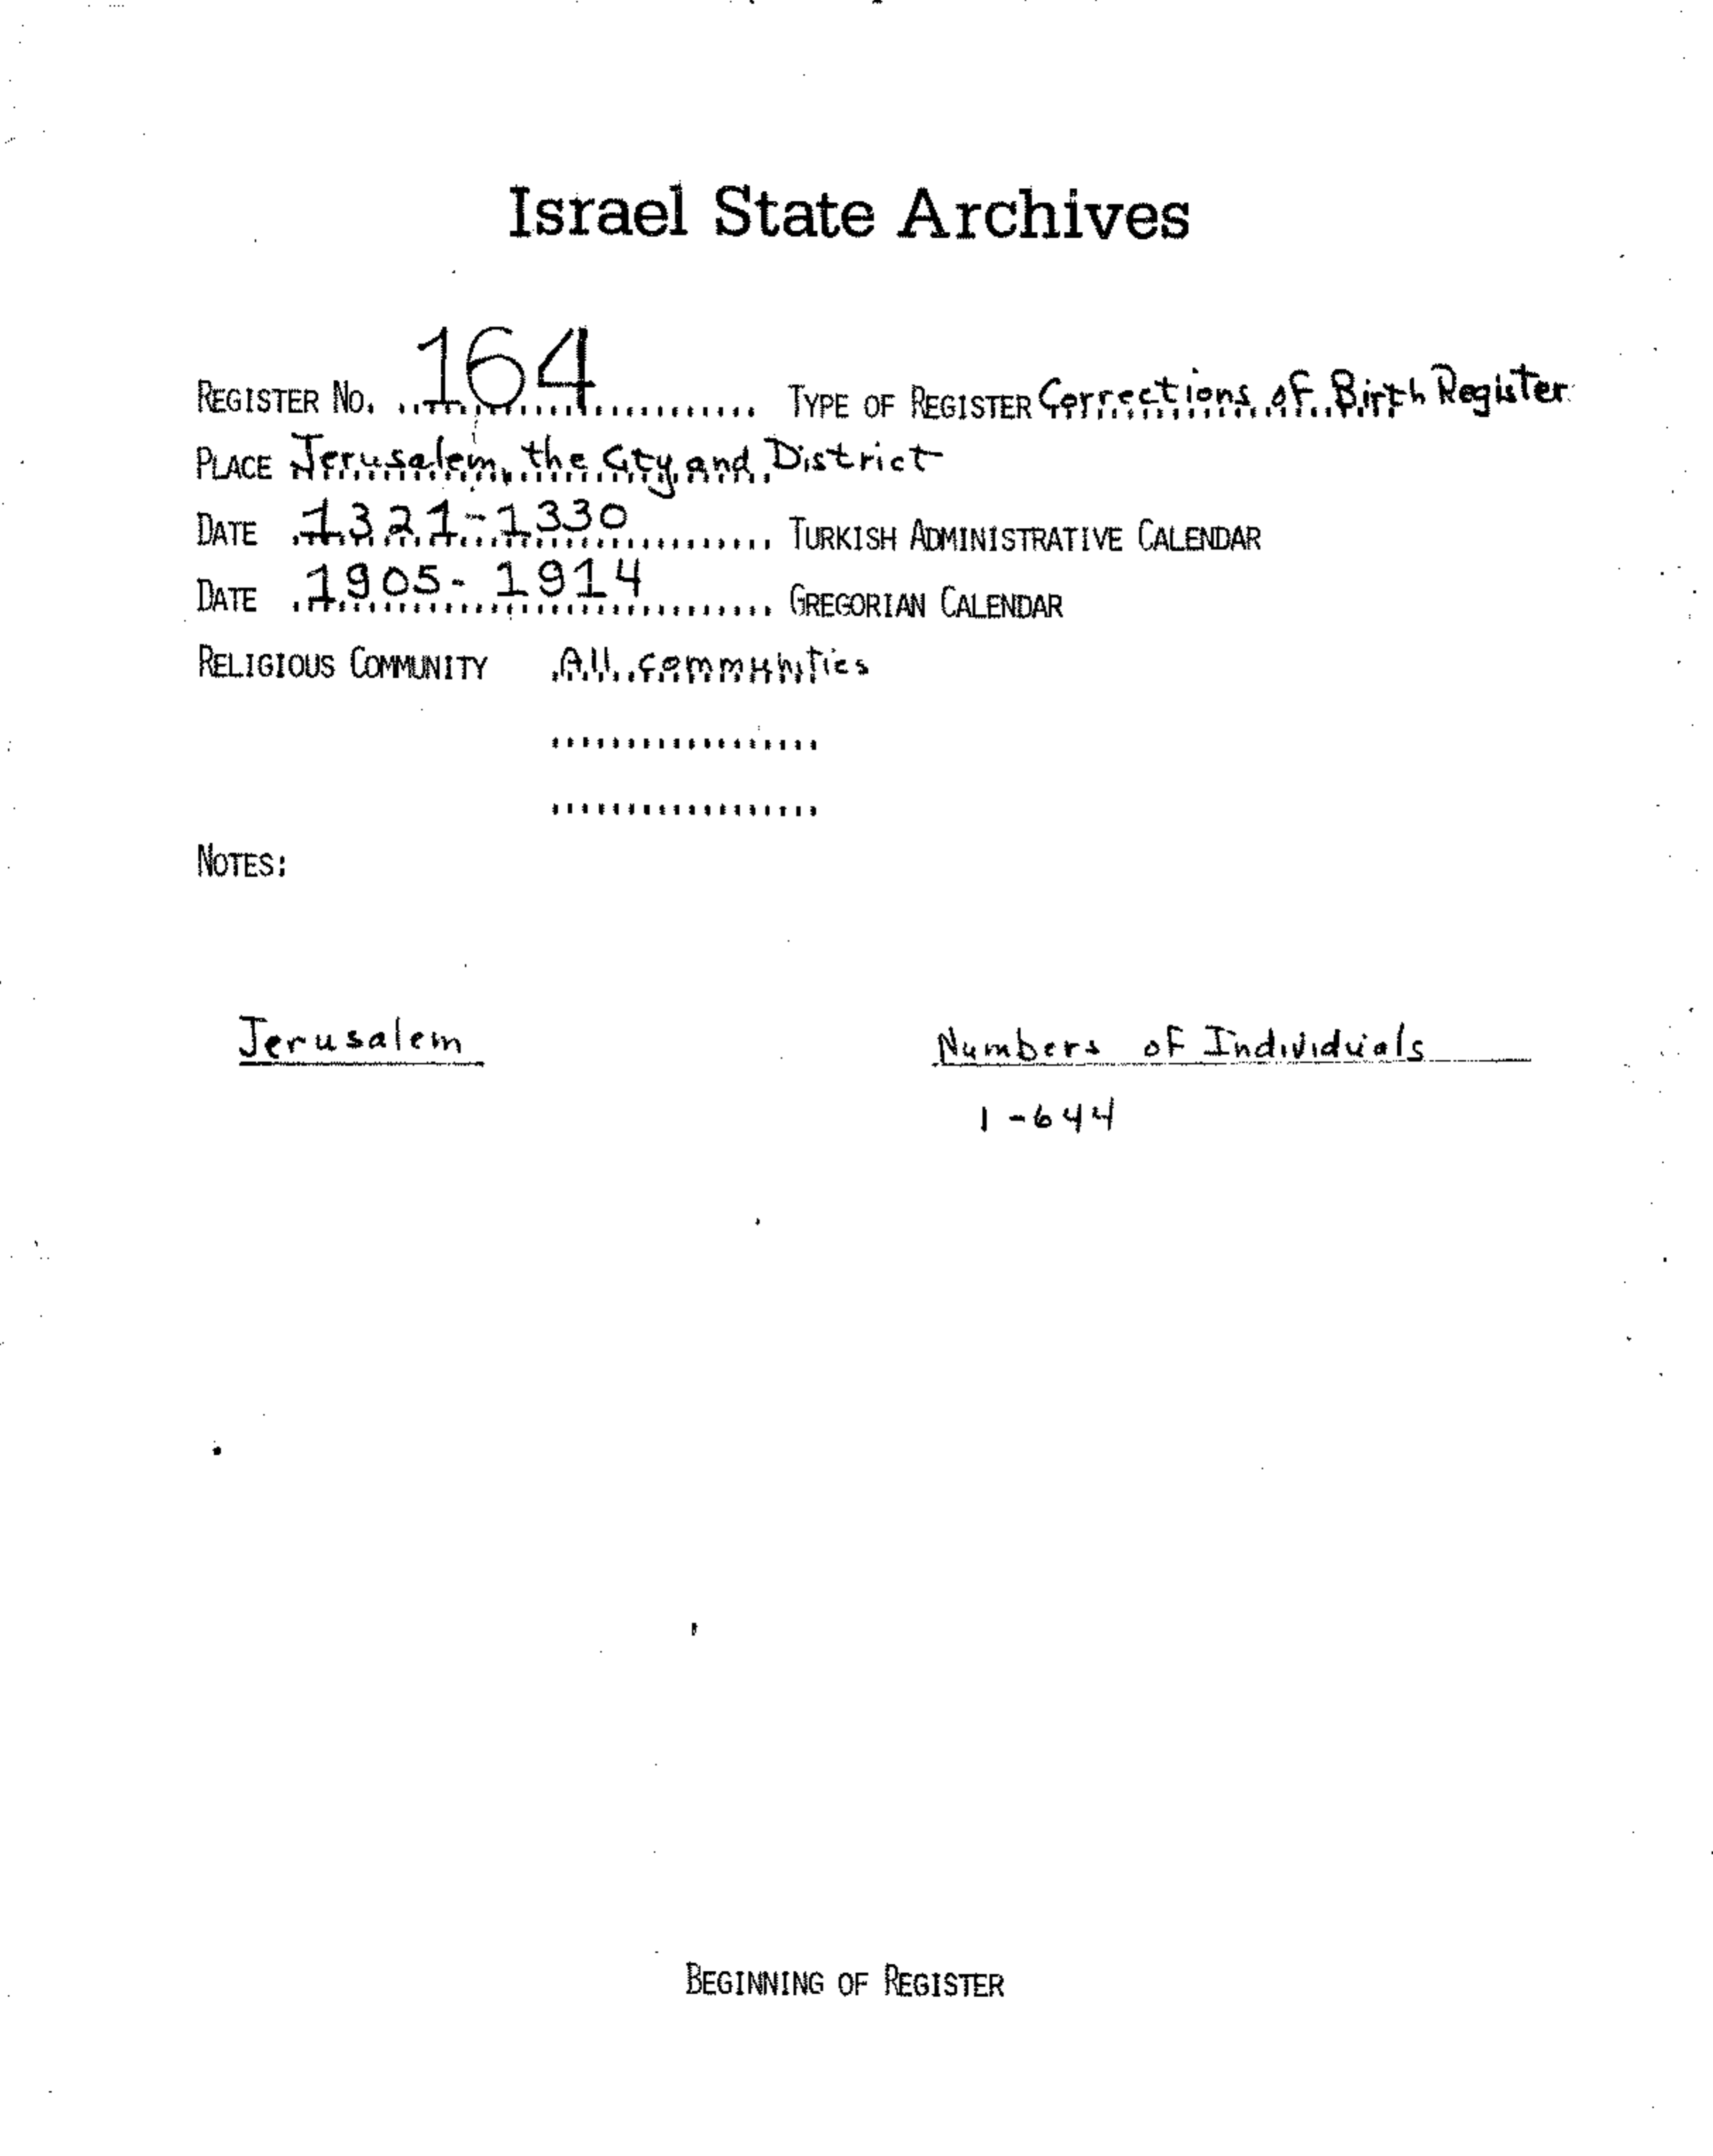 Israel State Archives
REGISTER NO. 164 TYPE OF REGISTER Corrections of Birth Register
PLACE Jerusalem, the City and District
DATE 1321-1330 TURKISH ADMINISTRATIVE CALENDAR
DATE 1905-1914 GREGORIAN CALENDAR
RELIGIOUS COMMUNITY All communities
NOTES:
Jerusalem Numbers of Individuals
1-644
BEGINNING OF REGISTER